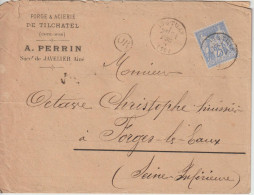 FORGE & SCIERIE
DE TILCHATEL
A. PERRIN
Succr de JAVELIER Aîné
Monsieur
Octave Christophe huissier
à Forges-les-Eaux
(Seine Inférieure)